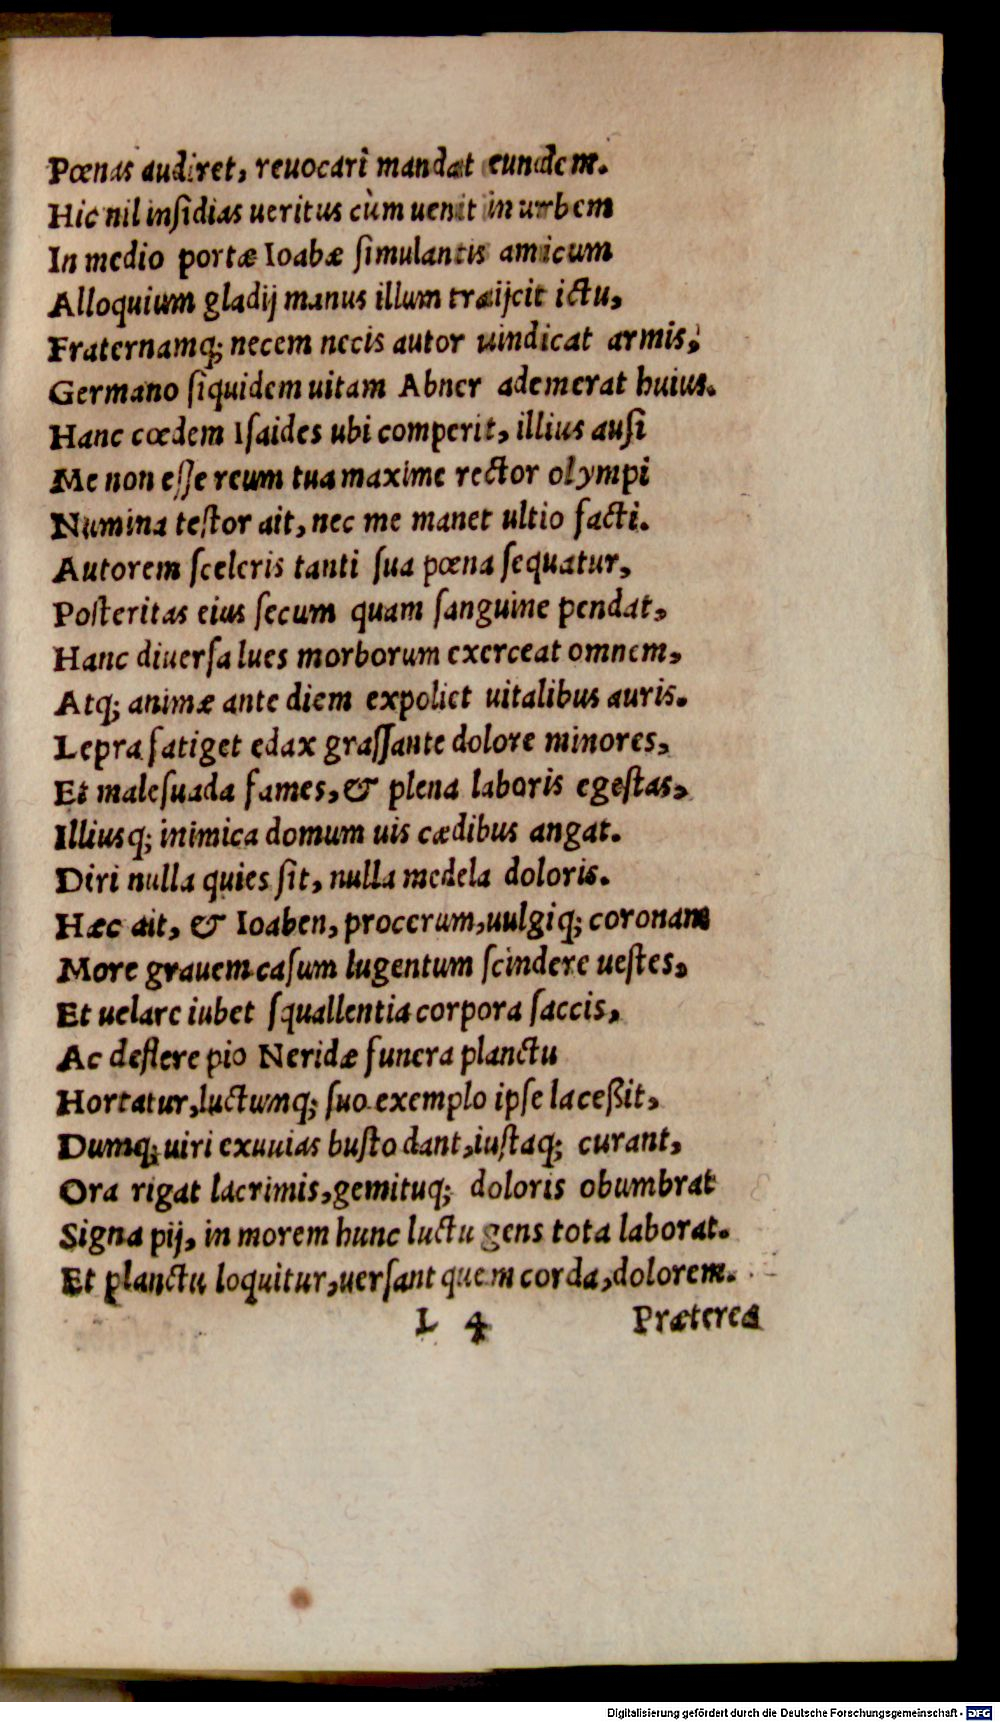 Pœnas audiret, reuocari mandat eundem.
Hic nil inſidias ueritus cùm uenit in urbem
In medio portæ Ioabæ ſimulantis amicum
Alloquium gladij manus illum traijcit ictu,
Fraternamq; necem necis autor uindicat armis,
Germano ſiquidem uitam Abner ademerat huius.
Hanc cœdem Iſaides ubi comperit, illius auſi
Me non eſſe reum tua maxime rector olympi
Numina teſtor ait, nec me manet ultio facti.
Autorem ſceleris tanti ſua pœna ſequatur,
Poſteritas eius ſecum quam ſanguine pendat,
Hanc diuerſa lues morborum exerceat omnem,
Atq; animæ ante diem expoliet uitalibus auris.
Lepra fatiget edax graſſante dolore minores,
Et maleſuada fames, & plena laboris egeſtas,
Illiusq; inimica domum uis cædibus angat.
Diri nulla quies ſit, nulla medela doloris.
Hæc ait, & Ioaben, procerum, uulgiq; coronam
More grauem caſum lugentum ſcindere ueſtes,
Et uelare iubet ſquallentia corpora ſaccis,
Ac deflere pio Neridæ funera planctu
Hortatur, luctumq; ſuo exemplo ipſe laceßit,
Dumq; uiri exuuias buſto dant, iuſtaq; curant,
Ora rigat lacrimis, gemituq; doloris obumbrat
Signa pij, in morem hunc luctu gens tota laborat.
Et planctu loquitur, uerſant quem corda, dolorem.
L 4 Præterea
Digitalisierung gefördert durch die Deutsche Forschungsgemeinschaft - DFG